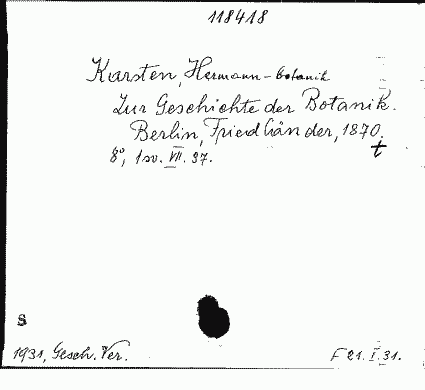 118418
Karsten, Hermann - botanik
Zur Geschichte der Botanik.
Berlin, Friedländer, 1870.
t
8°, 1 sv. VII. 37.
S
1931, Gesch. Ver.
F 21. I. 31.